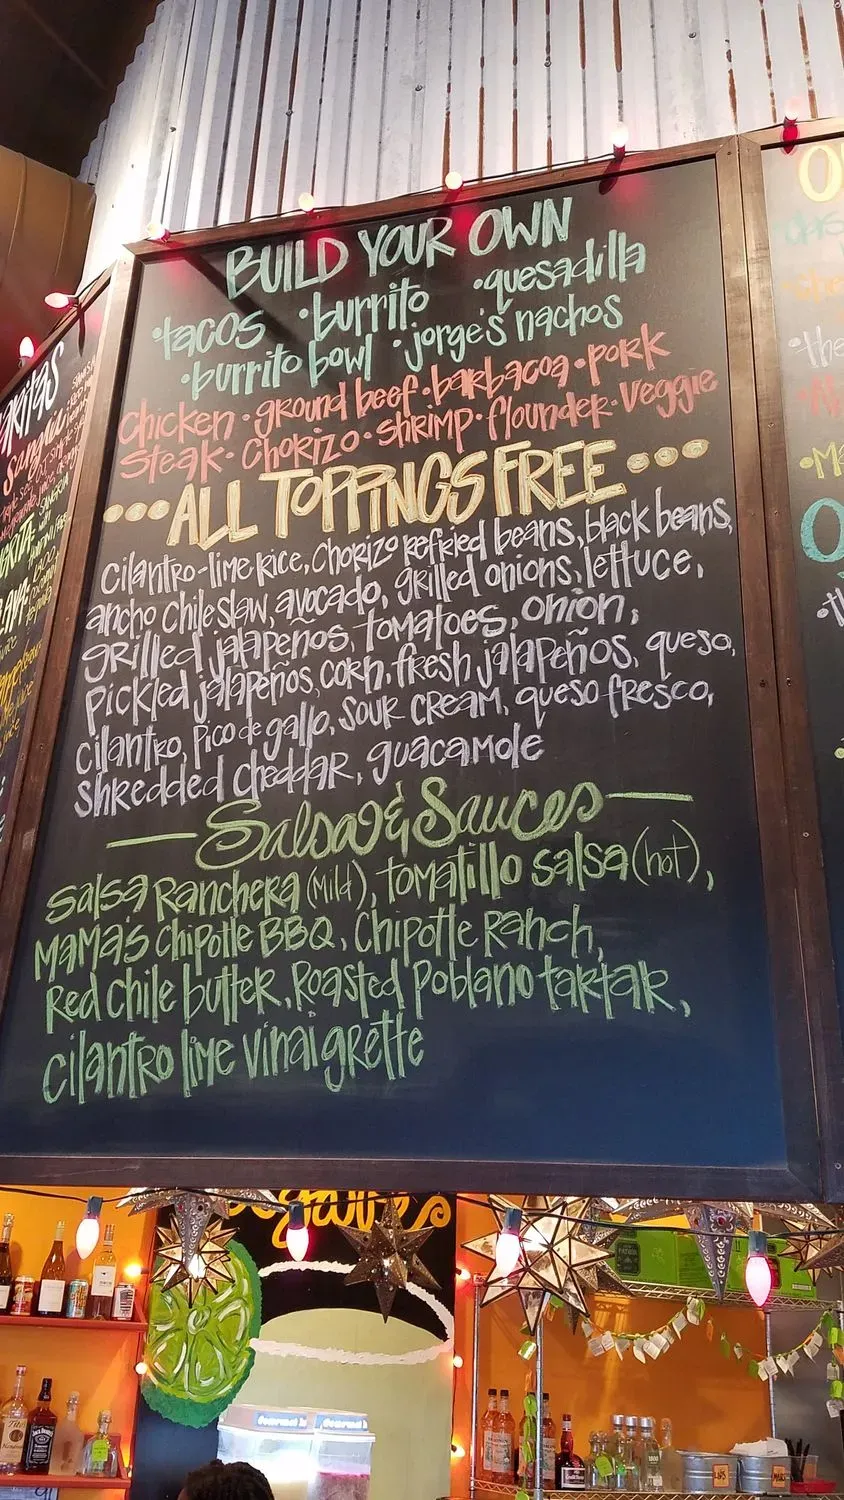 BUILD YOUR OWN
•tacos •burrito •quesadilla
•burrito bowl •jorge's nachos
Chicken • ground beef • barbacoa • pork
Steak • Chorizo • shrimp • flounder • veggie
•••ALL TOPPINGS FREE•••
cilantro-lime rice, chorizo refried beans, black beans,
ancho chile slaw, avocado, grilled onions, lettuce,
grilled jalapeños, tomatoes, onion,
pickled jalapeños, corn, fresh jalapeños, queso,
cilantro, pico de gallo, sour cream, queso fresco,
shredded cheddar, guacamole
Salsa & Sauces
salsa ranchera (mild), tomatillo salsa (hot),
mama's chipotle BBQ, chipotle ranch,
red chile butter, roasted poblano tartar,
cilantro lime vinaigrette
Sangria